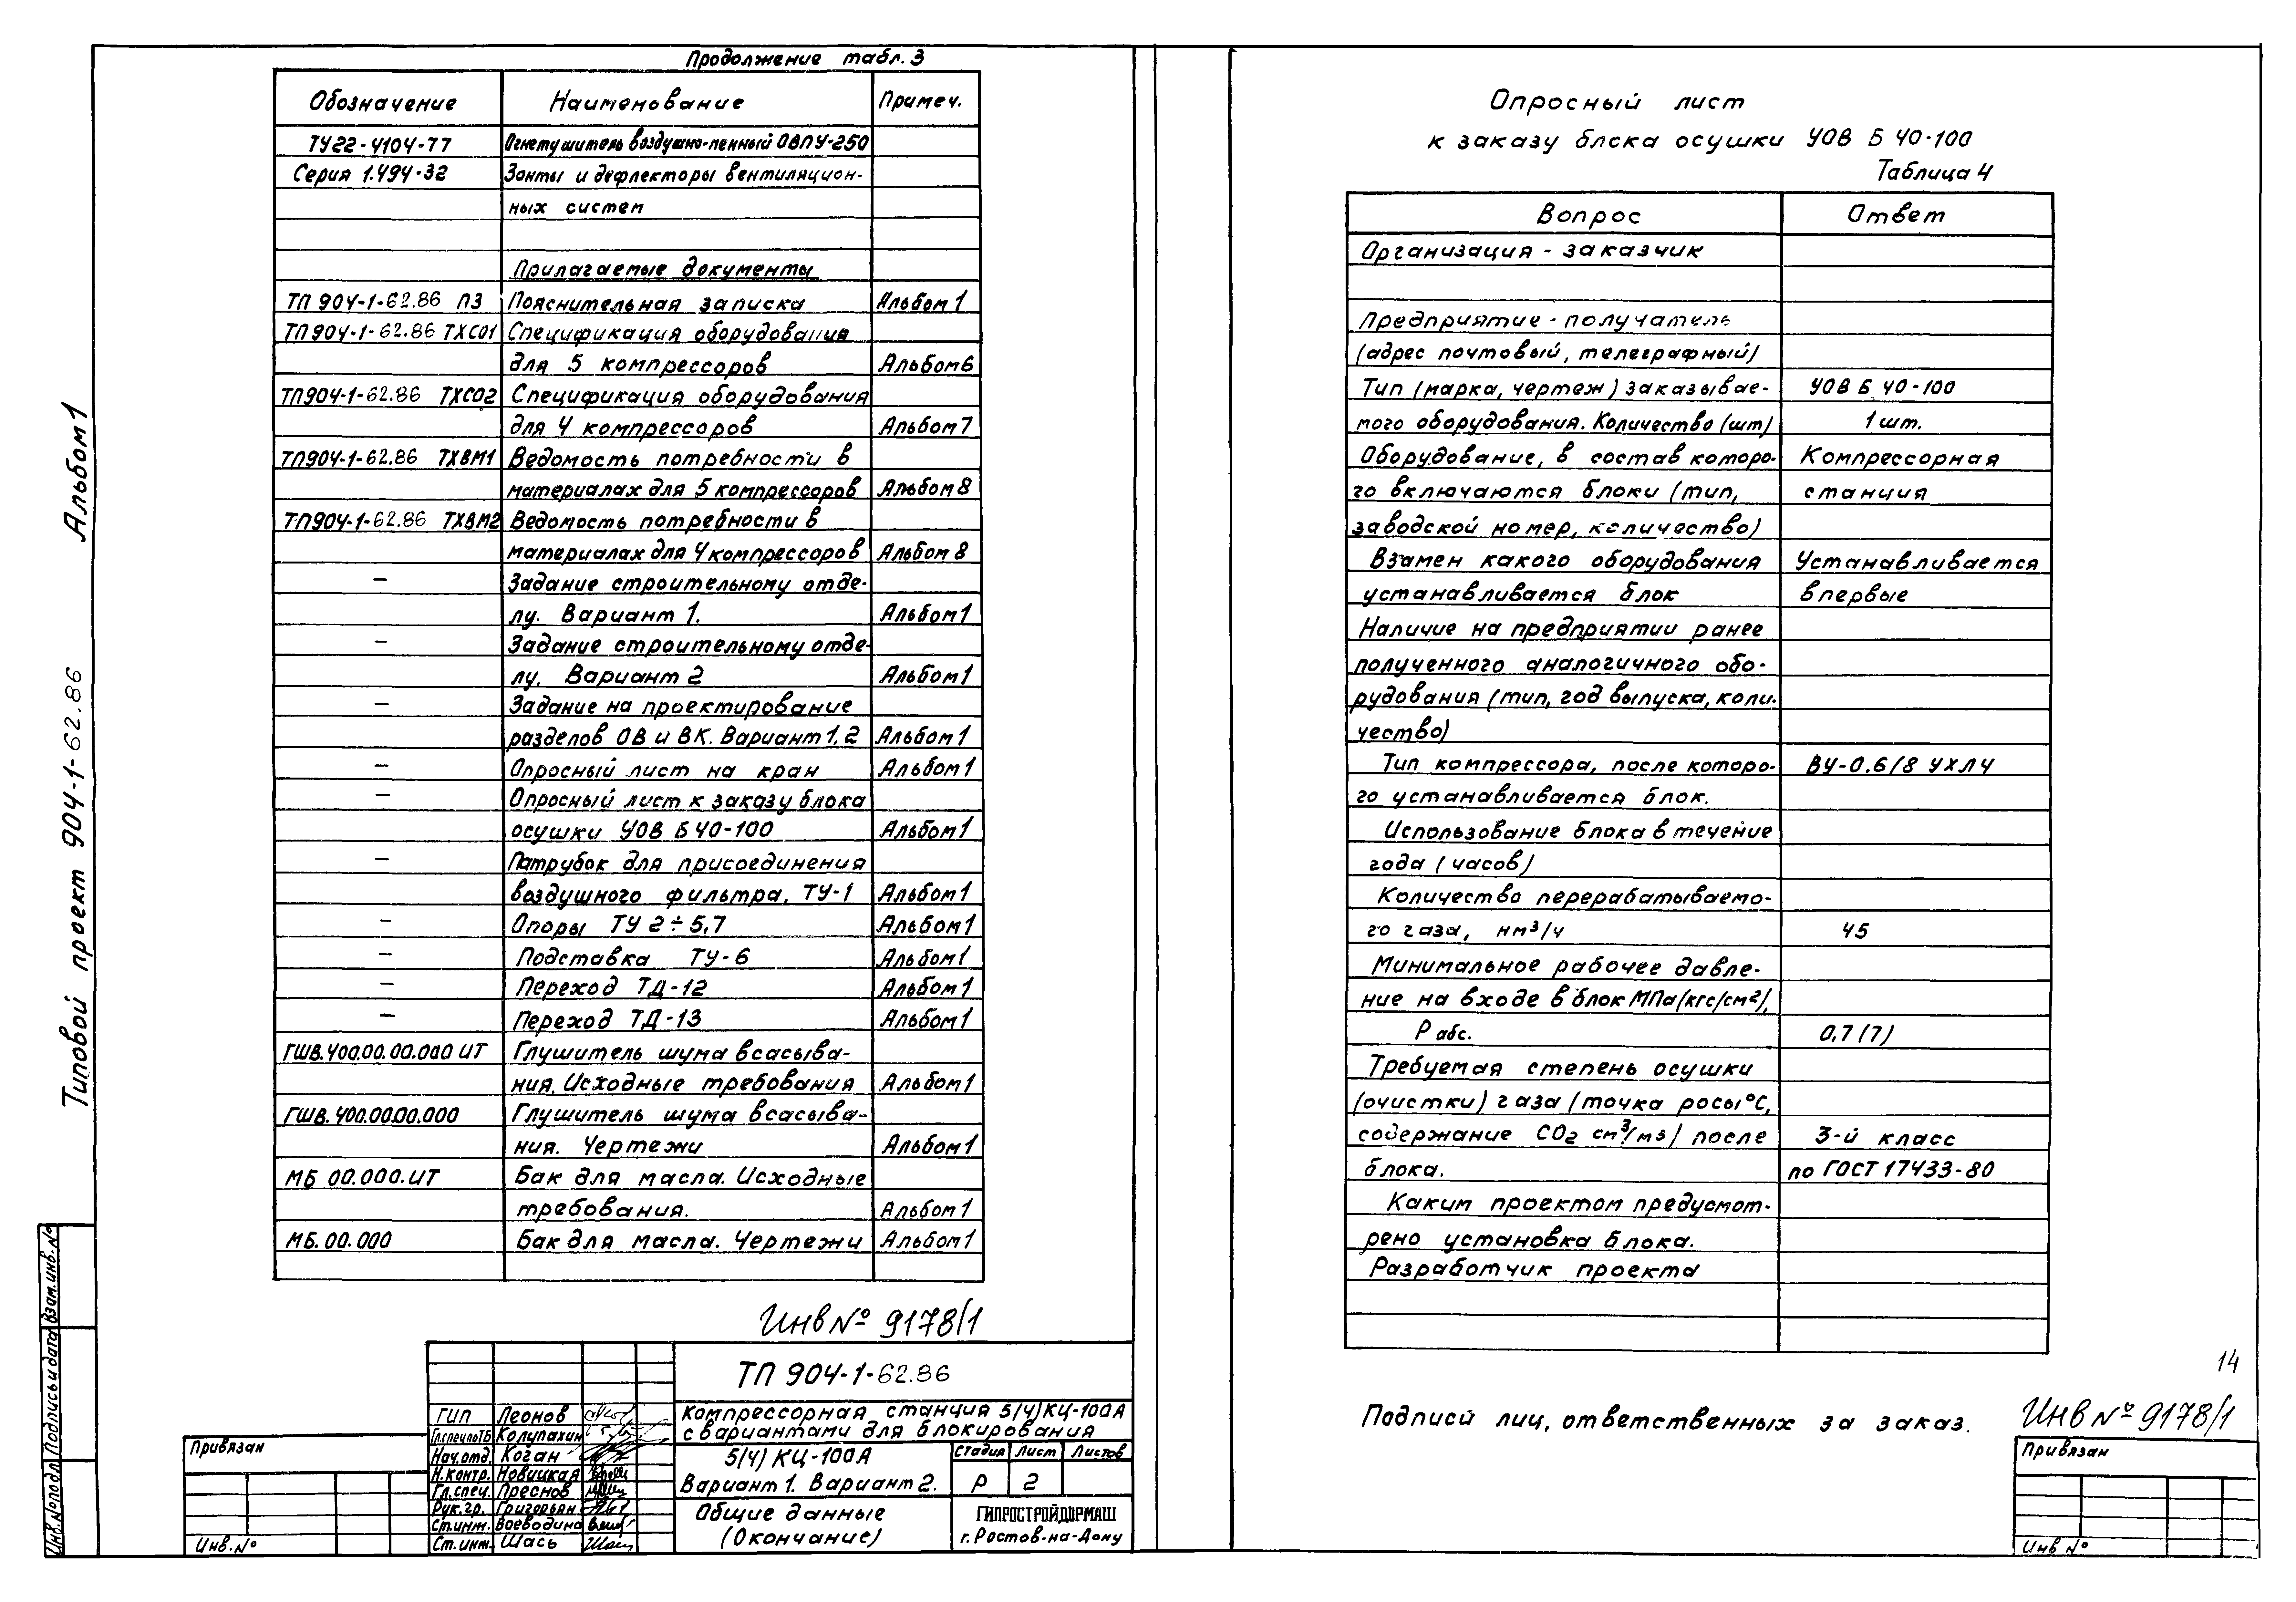 Продолжение табл. 3
Обозначение Наименование Примеч.
ТУ22-4104-77 Огнетушитель воздушно-пенный ОВПУ-250
Серия 1.494-32 Зонты и дефлекторы вентиляцион-
ных систем
Прилагаемые документы
ТП 904-1-62.86 ПЗ Пояснительная записка Альбом 1
ТП904-1-62.86 ТХСО1 Спецификация оборудования
для 5 компрессоров Альбом 6
ТП904-1-62.86 ТХСО2 Спецификация оборудования
для 4 компрессоров Альбом 7
ТП904-1-62.86 ТХВМ1 Ведомость потребности в
материалах для 5 компрессоров Альбом 8
ТП904-1-62.86 ТХВМ2 Ведомость потребности в
материалах для 4 компрессоров Альбом 8
— Задание строительному отде-
лу. Вариант 1. Альбом 1
— Задание строительному отде-
лу. Вариант 2 Альбом 1
— Задание на проектирование
разделов ОВ и ВК. Вариант 1, 2 Альбом 1
— Опросный лист на кран Альбом 1
— Опросный лист к заказу блока
осушки УОВ Б 40-100 Альбом 1
— Патрубок для присоединения
воздушного фильтра, ТУ-1 Альбом 1
— Опоры ТУ 2÷5,7 Альбом 1
— Подставка ТУ-6 Альбом 1
— Переход ТД-12 Альбом 1
— Переход ТД-13 Альбом 1
ГШВ.400.00.00.000 ИТ Глушитель шума всасыва-
ния. Исходные требования Альбом 1
ГШВ.400.00.00.000 Глушитель шума всасыва-
ния. Чертежи Альбом 1
МБ 00.000.ИТ Бак для масла. Исходные
требования. Альбом 1
МБ.00.000 Бак для масла. Чертежи Альбом 1
Инв № 9178/1
ТП 904-1-62.86
Компрессорная станция 5(4)КЦ-100А
с вариантами для блокирования
5(4) КЦ-100А
Вариант 1. Вариант 2.
Стадия Лист Листов
Р 2
Общие данные
(Окончание)
ГИПРОСТРОЙДОРМАШ
г. Ростов-на-Дону
ГИП Леонов
Гл.спец по ТБ Колупахин
Нач.отд. Коган
Н.контр. Новицкая
Гл.спец. Преснов
Рук.гр. Григорьян
Ст.инж. Воеводина
Ст.инж. Шась
Привязан
Инв.№
Типовой проект 904-1-62.86 Альбом 1
Инв.№ подл. Подпись и дата Взам.инв.№
Опросный лист
к заказу блока осушки УОВ Б 40-100
Таблица 4
Вопрос Ответ
Организация - заказчик
Предприятие - получатель
(адрес почтовый, телеграфный)
Тип (марка, чертеж) заказывае- УОВ Б 40-100
мого оборудования. Количество (шт) 1 шт.
Оборудование, в состав которо- Компрессорная
го включаются блоки (тип, станция
заводской номер, количество)
Взамен какого оборудования Устанавливается
устанавливается блок впервые
Наличие на предприятии ранее
полученного аналогичного обо-
рудования (тип, год выпуска, коли-
чество)
Тип компрессора, после которо- ВУ-0,6/8 УХЛ4
го устанавливается блок.
Использование блока в течение
года (часов)
Количество перерабатываемо-
го газа, нм³/ч 45
Минимальное рабочее давле-
ние на входе в блок МПа (кгс/см²),
Р абс. 0,7 (7)
Требуемая степень осушки
(очистки) газа (точка росы °С,
содержание СО₂ см³/м³) после 3-й класс
блока. по ГОСТ 17433-80
Каким проектом предусмот-
рено установка блока.
Разработчик проекта
14
Подписи лиц, ответственных за заказ.
Инв № 9178/1
Привязан
Инв №